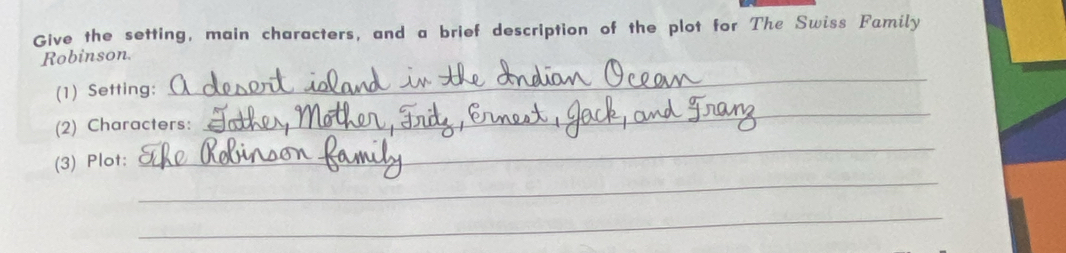 Give the setting, main characters, and a brief description of the plot for The Swiss Family
Robinson.
(1) Setting: A desert island in the Indian Ocean
(2) Characters: Father, Mother, Fritz, Ernest, Jack, and Franz
(3) Plot: The Robinson family